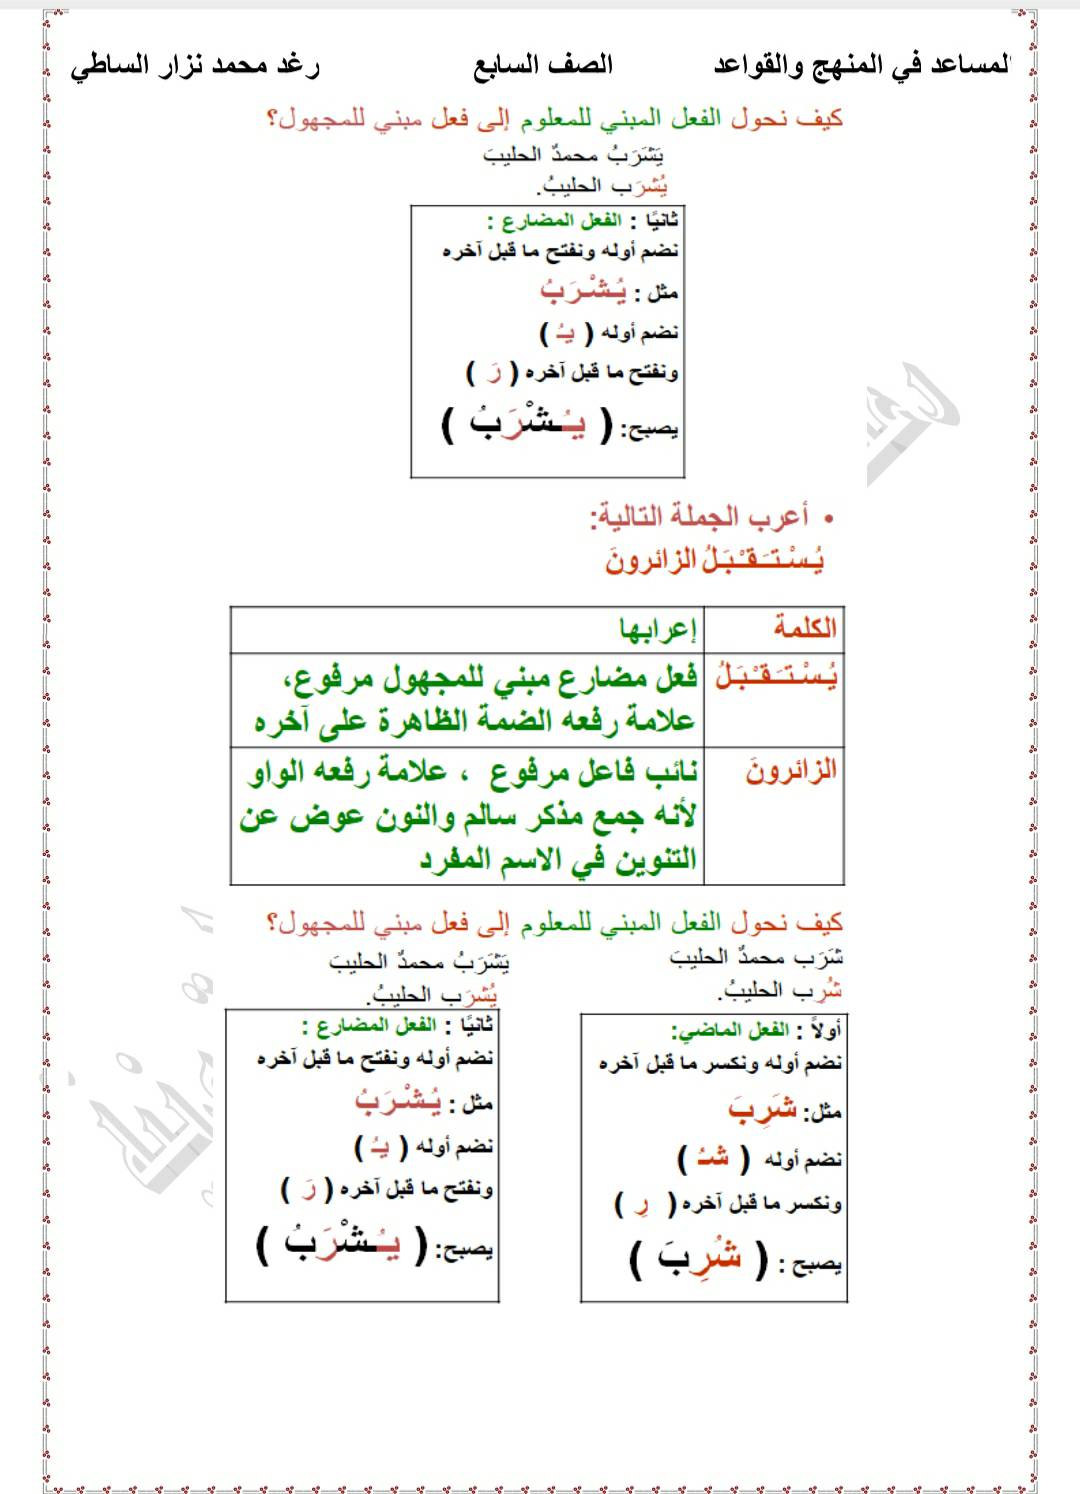 المساعد في المنهج والقواعد الصف السابع رغد محمد نزار الساطي
كيف نحول الفعل المبني للمعلوم إلى فعل مبني للمجهول؟
يَشَرَبُ محمدٌ الحليبَ
يُشرَب الحليبُ.
ثانيًا : الفعل المضارع :
نضم أوله ونفتح ما قبل آخره
مثل : يُـشْـرَبُ
نضم أوله ( يـُ )
ونفتح ما قبل آخره ( رَ )
يصبح: ( يـُـشْرَبُ )
• أعرب الجملة التالية:
يُـسْـتـَـقـْـبَـلُ الزائرونَ
الكلمة إعرابها
يُـسْـتـَـقـْـبَـلُ فعل مضارع مبني للمجهول مرفوع،
علامة رفعه الضمة الظاهرة على آخره
الزائرونَ نائب فاعل مرفوع ، علامة رفعه الواو
لأنه جمع مذكر سالم والنون عوض عن
التنوين في الاسم المفرد
كيف نحول الفعل المبني للمعلوم إلى فعل مبني للمجهول؟
شَرَب محمدٌ الحليبَ
شُرب الحليبُ.
أولاً : الفعل الماضي:
نضم أوله ونكسر ما قبل آخره
مثل: شَرِبَ
نضم أوله ( شـُ )
ونكسر ما قبل آخره ( رِ )
يصبح : ( شُرِبَ )
يَشَرَبُ محمدٌ الحليبَ
يُشرَب الحليبُ.
ثانيًا : الفعل المضارع :
نضم أوله ونفتح ما قبل آخره
مثل : يُـشْـرَبُ
نضم أوله ( يـُ )
ونفتح ما قبل آخره ( رَ )
يصبح: ( يـُـشْرَبُ )